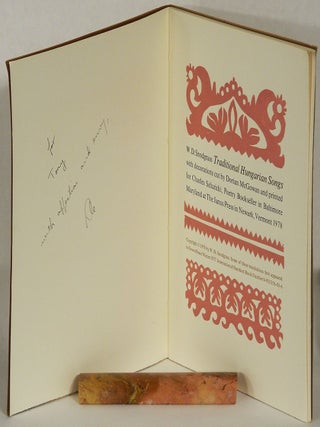 for
Tony
with affection and
W. D. Snodgrass Traditional Hungarian Songs
with decorations cut by Dorian McGowan and printed
for Charles Seluzicki, Poetry Bookseller in Baltimore
Maryland at The Janus Press in Newark, Vermont 1978
Copyright 1978 by W. D. Snodgrass. Some of these translations first appeared